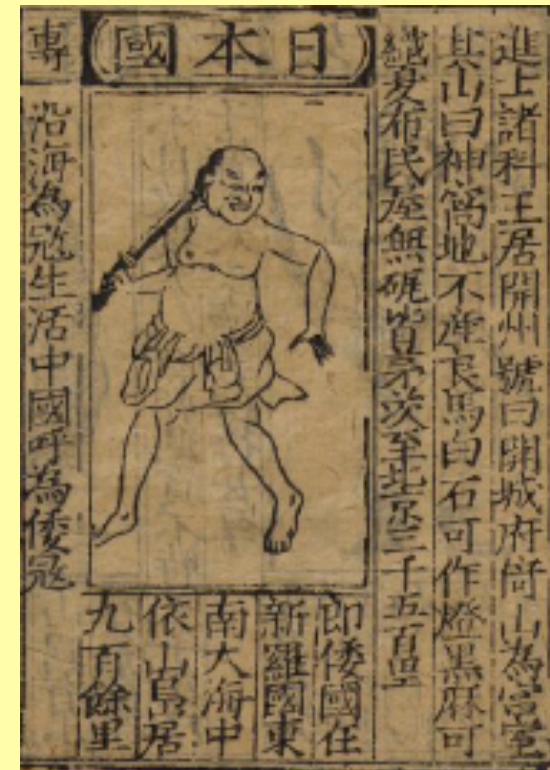 進上諸科王居開州號曰開城府倚山為宮室
其山曰神窩地不產良馬白石可作燈黑麻可
織夏布民屋無瓴皆茅茨至北京三千五百里
日本國
即倭國在
新羅國東
南大海中
依山島居
九百餘里
專
沿海為寇生活中國呼為倭寇